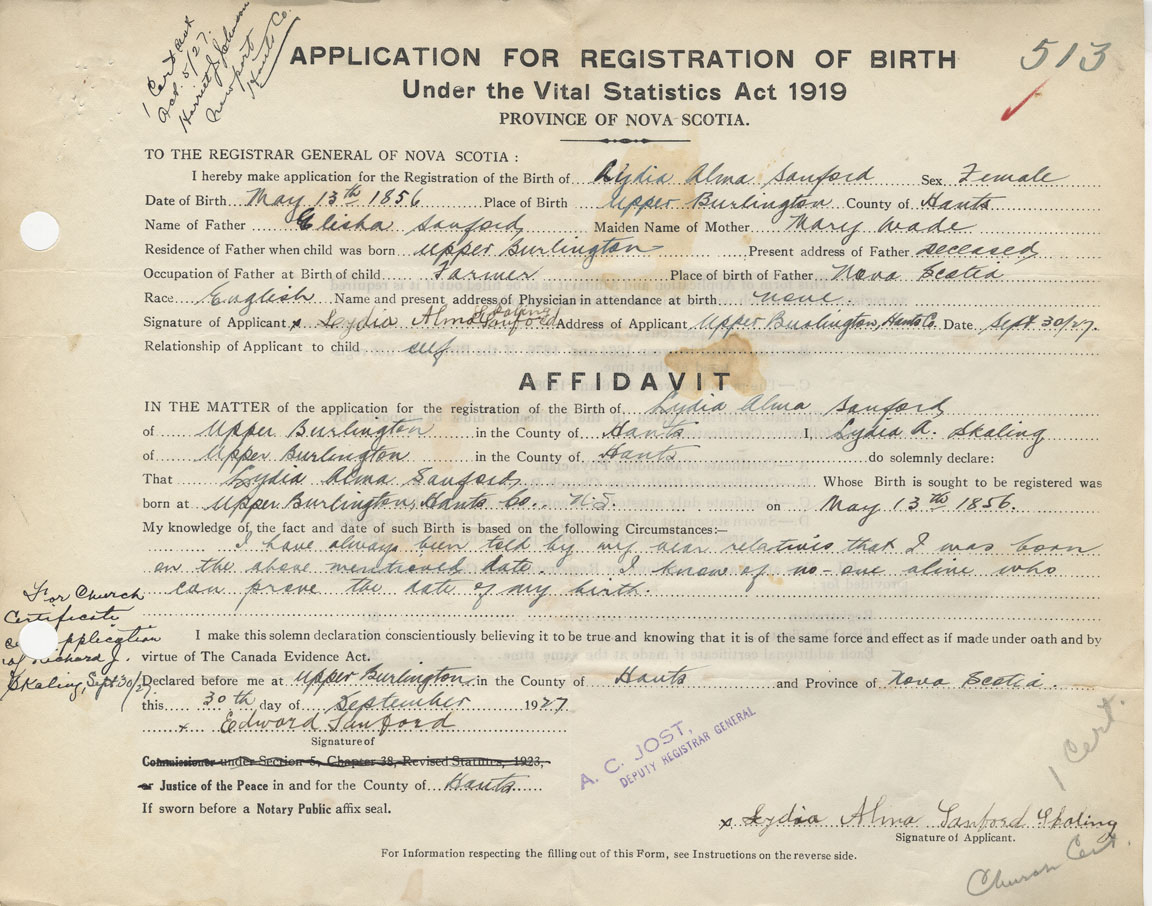 1 Cert ask
Oct. 5/27.
Harriet J. Johnson
Newport
Hants Co.
513
APPLICATION FOR REGISTRATION OF BIRTH
Under the Vital Statistics Act 1919
PROVINCE OF NOVA SCOTIA.
TO THE REGISTRAR GENERAL OF NOVA SCOTIA :
I hereby make application for the Registration of the Birth of Lydia Alma Sanford Sex Female
Date of Birth May 13th 1856 Place of Birth Upper Burlington County of Hants
Name of Father Elisha Sanford Maiden Name of Mother Mary Wade
Residence of Father when child was born Upper Burlington Present address of Father deceased
Occupation of Father at Birth of child Farmer Place of birth of Father Nova Scotia
Race English Name and present address of Physician in attendance at birth none.
Signature of Applicant x Lydia Alma Sanford Skaling Address of Applicant Upper Burlington, Hants Co. Date Sept. 30/27.
Relationship of Applicant to child self
AFFIDAVIT
IN THE MATTER of the application for the registration of the Birth of Lydia Alma Sanford
of Upper Burlington in the County of Hants I, Lydia A. Skaling
of Upper Burlington in the County of Hants do solemnly declare:
That Lydia Alma Sanford Whose Birth is sought to be registered was
born at Upper Burlington, Hants Co. N.S. on May 13th 1856.
My knowledge of the fact and date of such Birth is based on the following Circumstances:—
I have always been told by my near relatives that I was born
on the above mentioned date. I know of no-one alive who
can prove the date of my birth.
For Church
Certificate
application
of Richard J.
Skaling, Sept 30/27
I make this solemn declaration conscientiously believing it to be true and knowing that it is of the same force and effect as if made under oath and by
virtue of The Canada Evidence Act.
Declared before me at Upper Burlington in the County of Hants and Province of Nova Scotia.
this 30th day of September 1927
x Edward Sanford
Signature of
Commissioner under Section 5, Chapter 38, Revised Statutes, 1923,
or Justice of the Peace in and for the County of Hants
If sworn before a Notary Public affix seal.
A. C. JOST,
DEPUTY REGISTRAR GENERAL
1 Cert.
x Lydia Alma Sanford Skaling
Signature of Applicant.
For Information respecting the filling out of this Form, see Instructions on the reverse side.
Church Cert.